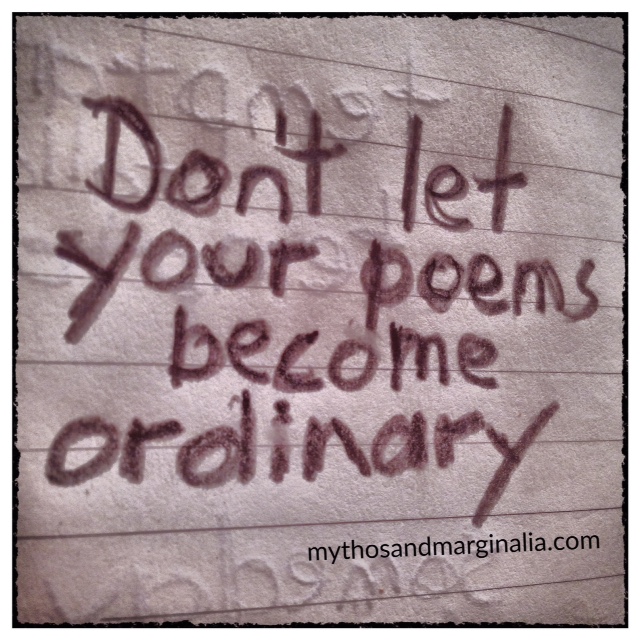 Don't let
your poems
become
ordinary
mythosandmarginalia.com